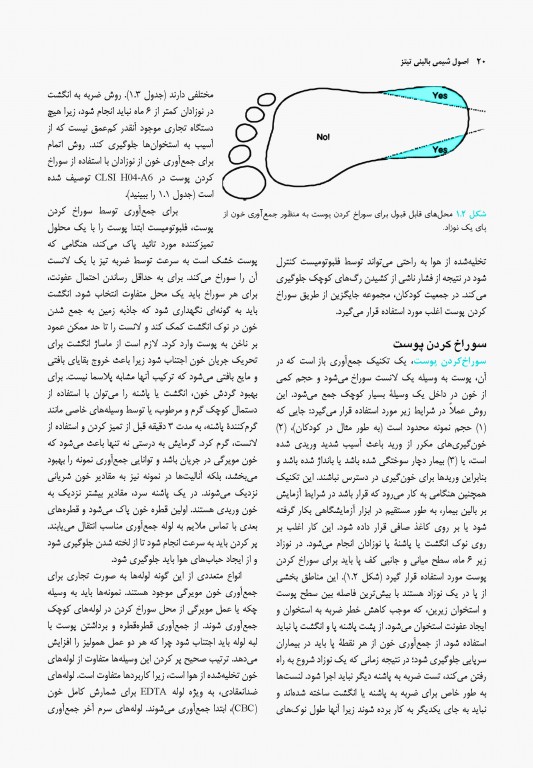 ۲۰ اصول شیمی بالینی تیتز
Yes
No!
Yes
شکل ۱.۲ محل‌های قابل قبول برای سوراخ کردن پوست به منظور جمع‌آوری خون از
پای یک نوزاد.
تخلیه‌شده از هوا به راحتی می‌تواند توسط فلبوتومیست کنترل
شود در نتیجه از فشار ناشی از کشیدن رگ‌های کوچک جلوگیری
می‌کند. در جمعیت کودکان، مجموعه جایگزین از طریق سوراخ
کردن پوست اغلب مورد استفاده قرار می‌گیرد.
سوراخ کردن پوست
سوراخ‌کردن پوست، یک تکنیک جمع‌آوری باز است که در
آن، پوست به وسیله یک لانست سوراخ می‌شود و حجم کمی
از خون در داخل یک وسیلهٔ بسیار کوچک جمع می‌شود. این
روش عملاً در شرایط زیر مورد استفاده قرار می‌گیرد: جایی که
(۱) حجم نمونه محدود است (به طور مثال در کودکان)، (۲)
خون‌گیری‌های مکرر از ورید باعث آسیب شدید وریدی شده
است، یا (۳) بیمار دچار سوختگی شده باشد یا بانداژ شده باشد و
بنابراین وریدها برای خون‌گیری در دسترس نباشند. این تکنیک
همچنین هنگامی به کار می‌رود که قرار باشد در شرایط آزمایش
بر بالین بیمار، به طور مستقیم در ابزار آزمایشگاهی بکار گرفته
شود یا بر روی کاغذ صافی قرار داده شود. این کار اغلب بر
روی نوک انگشت یا پاشنهٔ پا نوزادان انجام می‌شود. در نوزاد
زیر ۶ ماه، سطح میانی و جانبی کف پا باید برای سوراخ کردن
پوست مورد استفاده قرار گیرد (شکل ۱.۲). این مناطق بخشی
از پا در یک نوزاد هستند با بیش‌ترین فاصله بین سطح پوست
و استخوان زیرین، که موجب کاهش خطر ضربه به استخوان و
ایجاد عفونت استخوان می‌شود. از پشت پاشنه پا و انگشت پا نباید
استفاده شود. از جمع‌آوری خون از هر نقطهٔ پا باید در بیماران
سرپایی جلوگیری شود؛ در نتیجه زمانی که یک نوزاد شروع به راه
رفتن می‌کند، تست ضربه به پاشنه دیگر نباید اجرا شود. لنست‌ها
به طور خاص برای ضربه به پاشنه یا انگشت ساخته شده‌اند و
نباید به جای یکدیگر به کار برده شوند زیرا آنها طول نوک‌های
مختلفی دارند (جدول ۱.۳). روش ضربه به انگشت
در نوزادان کمتر از ۶ ماه نباید انجام شود، زیرا هیچ
دستگاه تجاری موجود آنقدر کم‌عمق نیست که از
آسیب به استخوان‌ها جلوگیری کند. روش اتمام
برای جمع‌آوری خون از نوزادان با استفاده از سوراخ
کردن پوست در CLSI H04-A6 توصیف شده
است (جدول ۱.۱ را ببینید).
برای جمع‌آوری توسط سوراخ کردن
پوست، فلبوتومیست ابتدا پوست را با یک محلول
تمیزکننده مورد تائید پاک می‌کند، هنگامی که
پوست خشک است به سرعت توسط ضربه تیز با یک لانست
آن را سوراخ می‌کند. برای به حداقل رساندن احتمال عفونت،
برای هر سوراخ باید یک محل متفاوت انتخاب شود. انگشت
باید به گونه‌ای نگهداری شود که جاذبه زمین به جمع شدن
خون در نوک انگشت کمک کند و لانست را تا حد ممکن عمود
بر ناخن به پوست وارد کرد. لازم است از ماساژ انگشت برای
تحریک جریان خون اجتناب شود زیرا باعث خروج بقایای بافتی
و مایع بافتی می‌شود که ترکیب آنها مشابه پلاسما نیست. برای
بهبود گردش خون، انگشت یا پاشنه را می‌توان با استفاده از
دستمال کوچک گرم و مرطوب، یا توسط وسیله‌های خاصی مانند
گرم‌کنندهٔ پاشنه، به مدت ۳ دقیقه قبل از تمیز کردن و استفاده از
لانست، گرم کرد. گرمایش به درستی نه تنها باعث می‌شود که
خون مویرگی در جریان باشد و توانایی جمع‌آوری نمونه را بهبود
می‌بخشد، بلکه آنالیت‌ها در نمونه نیز به مقادیر خون شریانی
نزدیک می‌شوند. در یک پاشنه سرد، مقادیر بیشتر نزدیک به
خون وریدی هستند. اولین قطره خون پاک می‌شود و قطره‌های
بعدی با تماس ملایم به لوله جمع‌آوری مناسب انتقال می‌یابند.
پر کردن باید به سرعت انجام شود تا از لخته شدن جلوگیری شود
و از ایجاد حباب‌های هوا باید جلوگیری شود.
انواع متعددی از این گونه لوله‌ها به صورت تجاری برای
جمع‌آوری خون مویرگی موجود هستند. نمونه‌ها باید به وسیله
چکه یا عمل مویرگی از محل سوراخ کردن در لوله‌های کوچک
جمع‌آوری شوند. از جمع‌آوری قطره‌قطره و برداشتن پوست با
لبه لوله باید اجتناب شود چرا که هر دو عمل همولیز را افزایش
می‌دهد. ترتیب صحیح پر کردن این وسیله‌ها متفاوت از لوله‌های
خون تخلیه‌شده از هوا است، زیرا کاربردها متفاوت است. لوله‌های
ضدانعقادی، به ویژه لوله EDTA برای شمارش کامل خون
(CBC)، ابتدا جمع‌آوری می‌شوند. لوله‌های سرم آخر جمع‌آوری